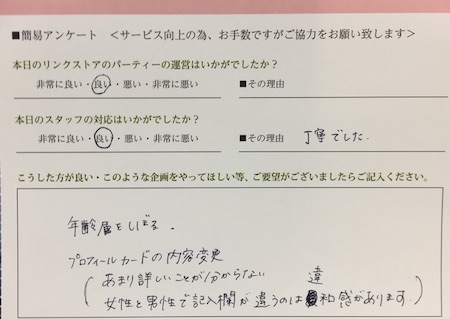 ■簡易アンケート ＜サービス向上の為、お手数ですがご協力をお願い致します＞
本日のリンクストアのパーティーの運営はいかがでしたか？
非常に良い・良い・悪い・非常に悪い ■その理由
本日のスタッフの対応はいかがでしたか？
非常に良い・良い・悪い・非常に悪い ■その理由 丁寧でした.
こうした方が良い・このような企画をやってほしい等、ご要望がございましたらご記入ください。
年齢層をしぼる。
プロフィールカードの内容変更
(あまり詳しいことが分からない
違
女性と男性で記入欄が違うのは和感があります.)